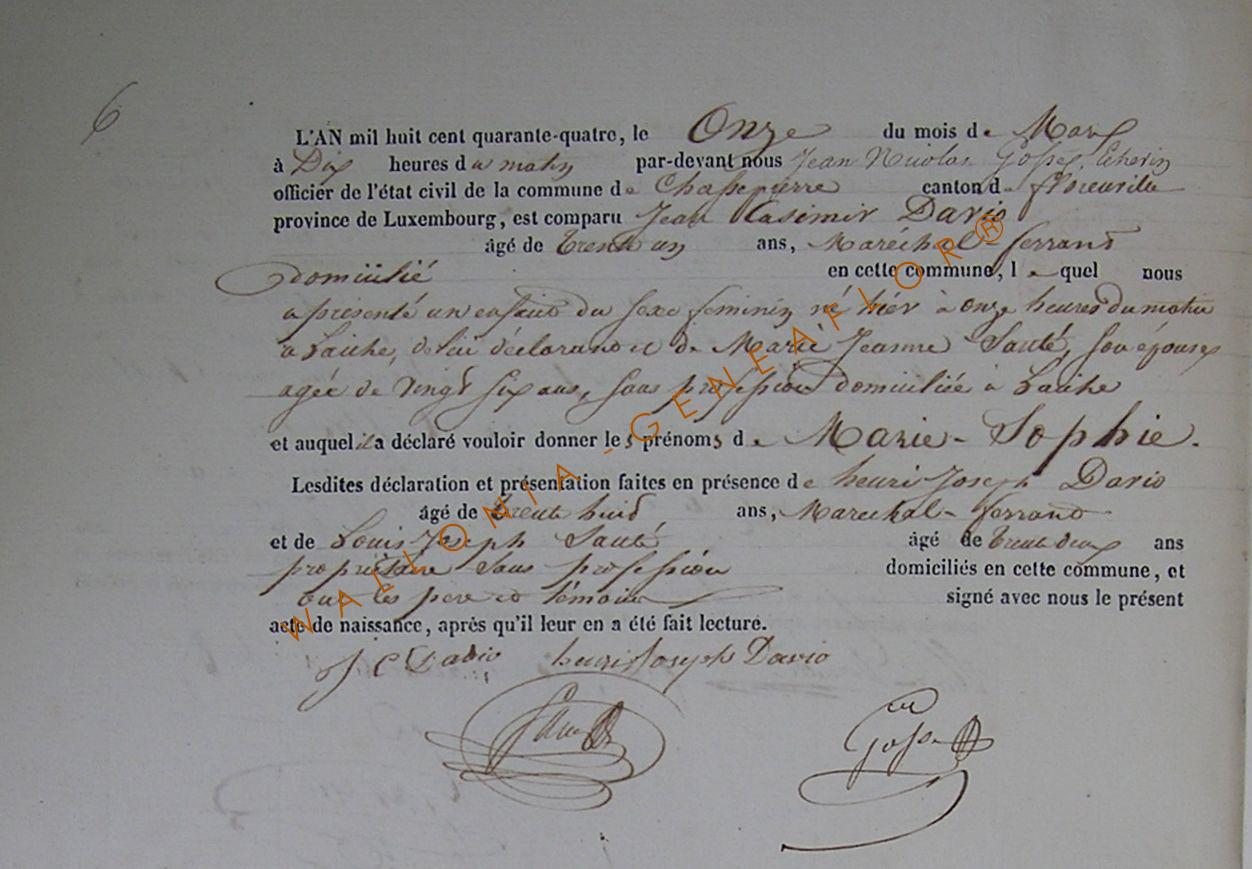 6
L'AN mil huit cent quarante-quatre, le Onze du mois de Mars
à Dix heures du matin par-devant nous Jean Nicolas Gosset, Echevin
officier de l'état civil de la commune de Chassepierre canton de florenville
province de Luxembourg, est comparu Jean Casimir Dario
âgé de trente un ans, Maréchal-ferrand
domicilié en cette commune, le quel nous
a présenté un enfant du sexe feminin né hier à onze heures du matin
a Laiche, de lui déclarant et de Marie Jeanne Sauté, son épouse
agée de vingt six ans, sans profession domiciliée à Laiche
et auquel il a déclaré vouloir donner les prénoms de Marie-Sophie.
Lesdites déclaration et présentation faites en présence de henri Joseph Dario
âgé de trente huit ans, Marechal-ferrand
et de Louis Joseph Sauté âgé de trente deux ans
propriétaire sans profession domiciliés en cette commune, et
ont les pere et témoins signé avec nous le présent
acte de naissance, après qu'il leur en a été fait lecture.
J C Dario henri Joseph Dario
Sauté
Gosset
WALLONIA-GENEAFLOR®